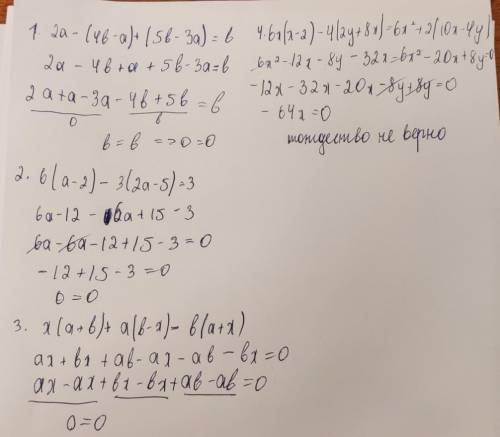 1. 2a - (4b - a) + (5b - 3a) = b
2a - 4b + a + 5b - 3a = b
2a + a - 3a - 4b + 5b = b
0 b
b = b => 0 = 0
2. 6(a - 2) - 3(2a - 5) = 3
6a - 12 - 6a + 15 - 3
6a - 6a - 12 + 15 - 3 = 0
-12 + 15 - 3 = 0
0 = 0
3. x(a + b) + a(b - x) = b(a + x)
ax + bx + ab - ax - ab - bx = 0
ax - ax + bx - bx + ab - ab = 0
0 = 0
4. 6x(x - 2) - 4(2y + 8x) = 6x² + 2(10x - 4y)
6x² - 12x - 8y - 32x - 6x² - 20x + 8y = 0
-12x - 32x - 20x - 8y + 8y = 0
- 64x = 0
тождество не верно